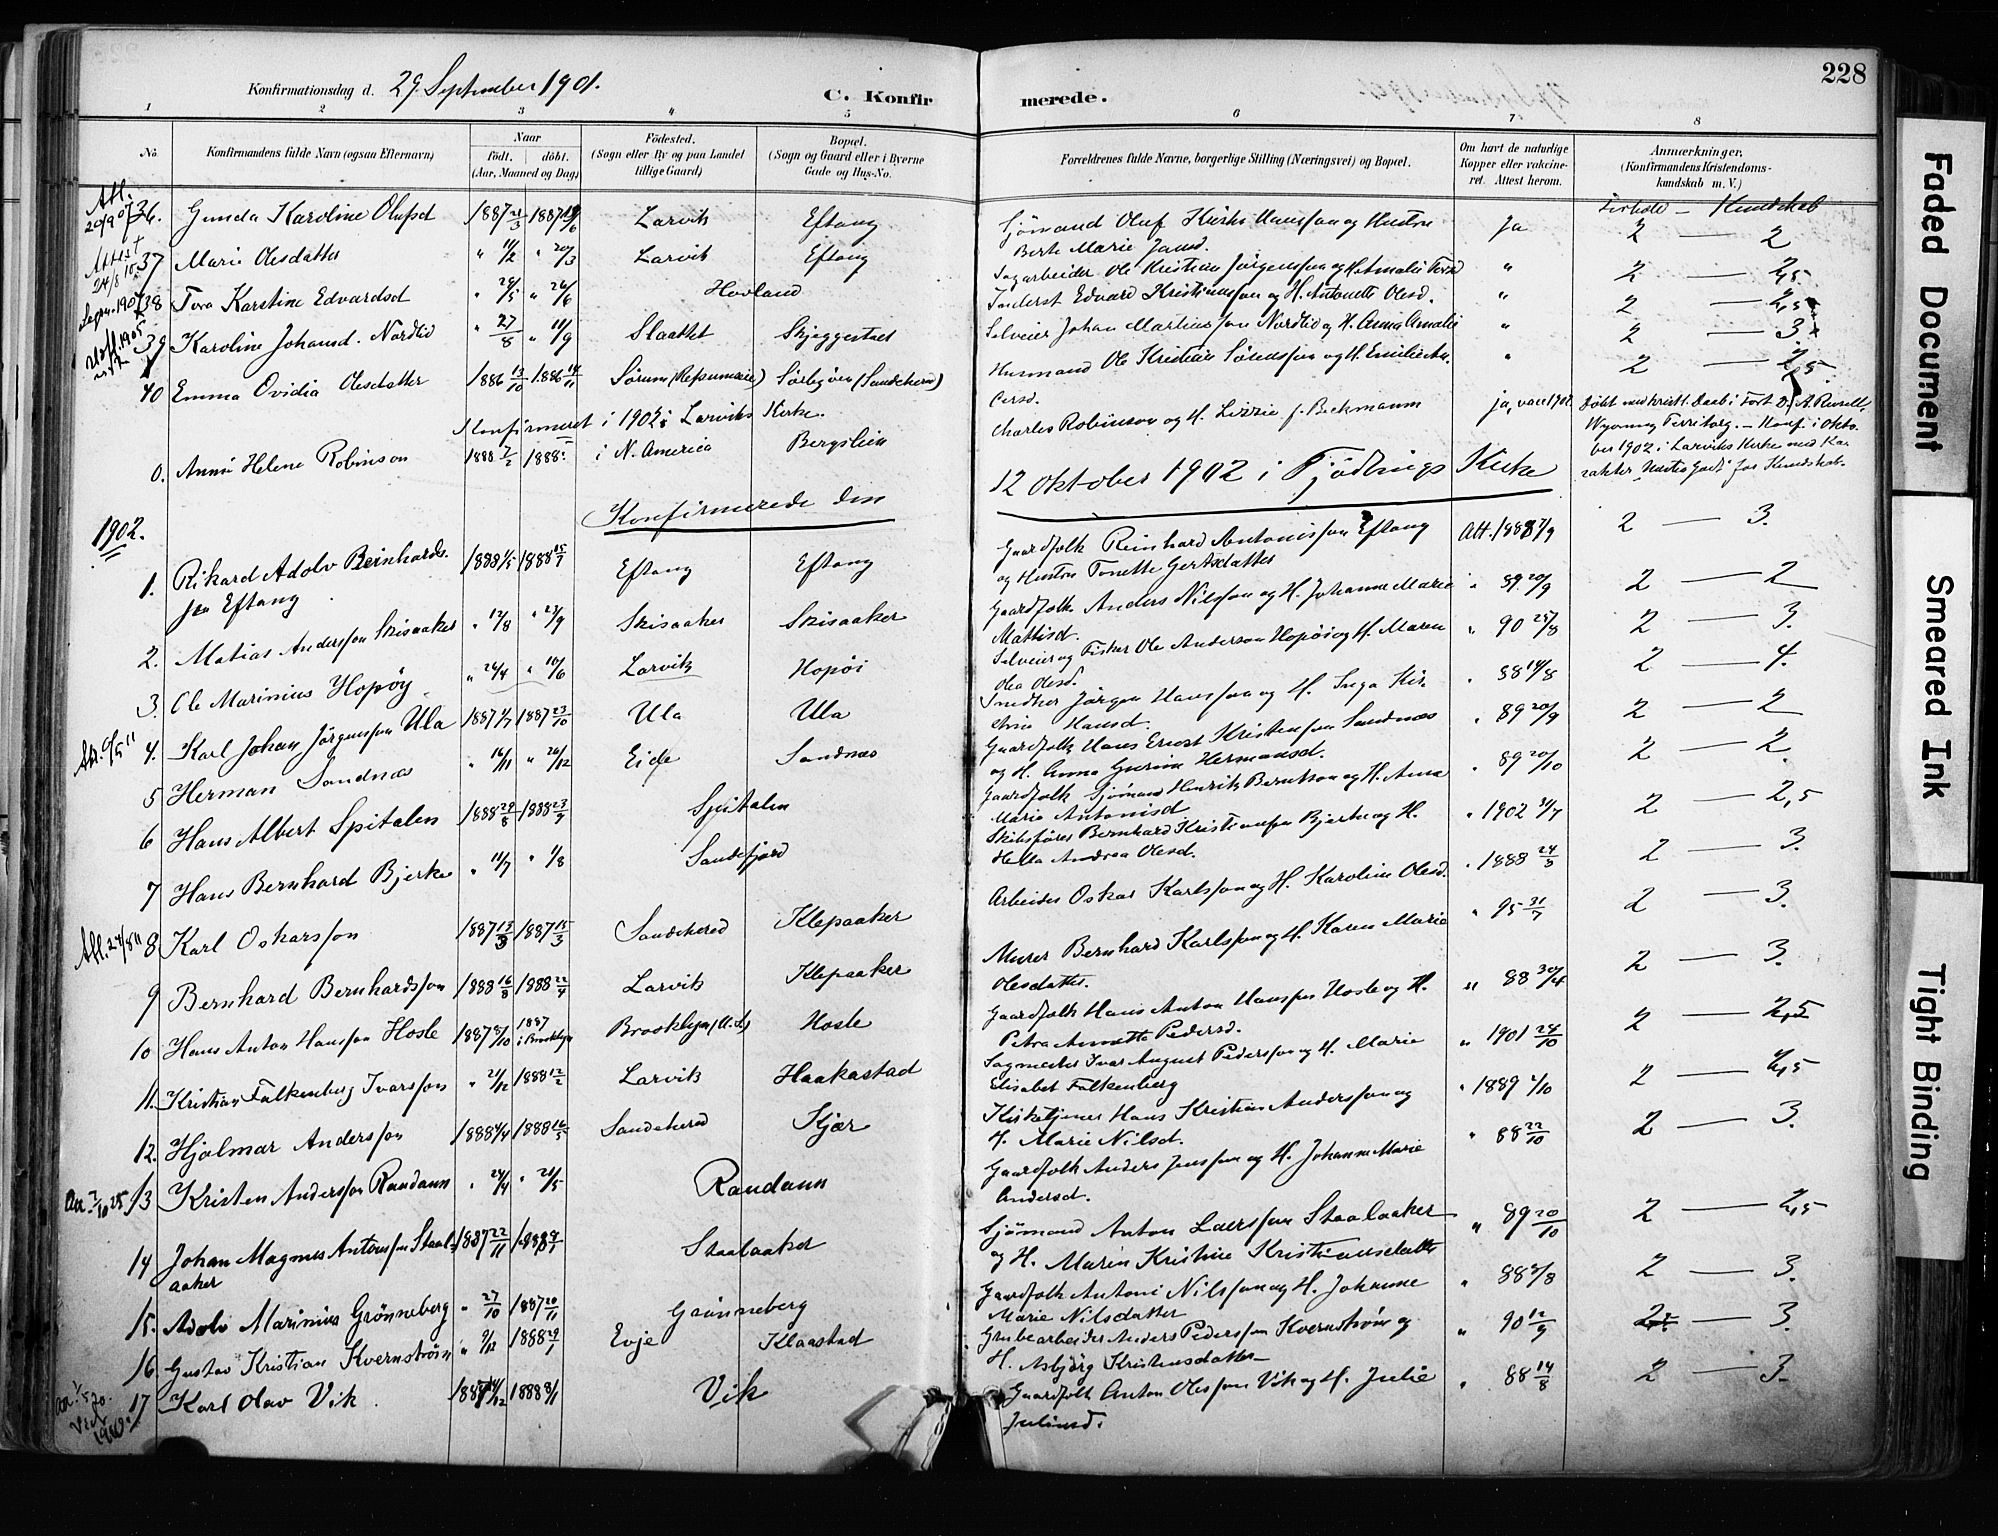 228
Konfirmationsdag d. 29 September 1901.
C. Konfirmerede.
1 2 3 4 5 6 7 8
No
Konfirmandens fulde Navn (ogsaa Efternavn)
Naar
født. døbt.
(Aar, Maaned og Dag)
Fødested.
(Sogn eller By og paa Landet
tillige Gaard)
Bopæl.
(Sogn og Gaard eller i Byerne
Gade og Hus-No.
Forældrenes fulde Navne, borgerlige Stilling (Næringsvei) og Bopæl.
Om havt de naturlige
Kopper eller vaccine-
ret. Attest herom.
Anmærkninger,
(Konfirmandens Kristendoms-
kundskab m. V.)
Forhold – Kundskab
36. Gunda Karoline Olufsd 1887 21/3 1887 19/6 Larvik Eftang Sjømand Oluf Hansson og Hustru Ja 2 — 2
Berte Marie Jansd.
37 Marie Olesdatter " 11/2 " 20/3 Larvik Eftang Sagarbeider Ole Kristian Jørgensson og H. Amalie " 2 — 2,5
38 Tora Karstine Edvardsd " 24/5 " 26/6 Hovland Inderst Edvard Kristiansson og H. Antonette Olesd. " 2 — 2,5
39 Karoline Johansd. Nordlid " 27/8 " 11/9 Slaattet Skjeggestad Selveier Johan Martinsson Nordlid og H. Anna Amalie " 2 — 3
40 Emma Ovidia Olesdatter 1886 13/10 1886 14/11 Sørum Sørbyøen (Sandeherred) Husmand Ole Kristian Sørensson og H. Emilie " 2 — 2,5
Konfirmeret i 1902 i Larviks Kirke.
0. Anna Helene Robinson 1888 7/2 1888 i N. America Bergslien Charles Robinson og H. Lizzie f. Beckmann Ja, vacc 1902 Døbt med kristl. Daab i Fort D. A. Russell,
Wyoming Territory. – Konf. i Okto-
ber 1902 i Larviks Kirke med Ka-
rakter Meget godt for Kundskab.
1902. Konfirmerede den 12 Oktober 1902 i Tjødlings Kirke
1. Rikard Adolv Reinhards- 1888 1/5 1888 15/7 Eftang Eftang Gaardfolk Reinhard Antonisson Eftang Att. 1888 7/9 2 — 3.
son Eftang og Hustru Tonette Gertsdatter
2. Matias Andersson Skisaaker " 12/8 " 23/9 Skisaaker Skisaaker Gaardfolk Anders Nilsson og H. Johanne Marie " 89 20/9 2 — 2
Mathisd.
3. Ole Marinius Hopøy " 24/4 " 10/6 Larvik Hopøi Selveier og Fisker Ole Anderson Hopøi og H. Maren " 90 25/8 2 — 3.
Olea Olesd.
4. Karl Johan Jørgensson Ula 1887 1/7 1887 23/10 Ula Ula Snedker Jørgen Hansson og H. Inga Kir- " 88 14/8 2 — 4.
stine Hansd.
5 Herman Sandnæs " 16/11 " 26/12 Eide Sandnæs Gaardfolk Hans Ernst Kristensson Sandnæs " 89 20/9 2 — 2
og H. Anna Gurine Hermansd.
6 Hans Albert Spitalen 1888 29/8 1888 23/9 Spitalen Gaardfolk Sjømand Henrik Berntson og H. Anna " 89 20/10 2 — 2.
Marie Antonisd
7 Hans Bernhard Bjerke " 11/7 " 1/8 Sandefjord Skibsfører Bernhard Kristiansson Bjerke og H. " 1902 31/7 2 — 2,5
Hella Andrea Olesd.
8 Karl Oskarsson 1887 13/3 1887 15/3 Sandeherred Klepaaker Arbeider Oskar Karlsson og H. Karoline Olesd. " 1888 24/8 2 — 3.
9 Bernhard Bernhardsson 1888 16/8 1888 22/4 Larvik Klepaaker Murer Bernhard Karlsson og H. Karen Marie " 95 31/7 2 — 3.
Olesdatter.
10 Hans Anton Hansson Hosle 1887 8/10 1887 i Brooklyn Brooklyn Hosle Gaardfolk Hans Anton Hansson Hosle og H. " 88 30/4 2 — 3.
Petra Annette Pedersd.
11. Kristian Falkenberg Ivarsson " 21/12 1888 12/2 Larvik Haakastad Sagmester Ivar August Pedersson og H. Marie " 1901 24/10 2 — 2,5
Elisabet Falkenberg
12. Hjalmar Andersson 1888 4/4 1888 16/5 Sandeherred Kjær Kirketjener Hans Kristian Andersson og " 1889 2/10 2 — 2,5
H. Marie Nilsd.
13 Kristen Andersson Raudann " 24/4 " 21/5 Raudann Gaardfolk Anders Jensson og H. Johanne Marie " 88 22/10 2 — 3.
Andersd.
14 Johan Magnus Antonsson Staal- 1887 22/11 1888 Staalaaker Sjømand Anton Larsson Staalaaker " 89 20/10 2 — 2,5
aaker og H. Maren Kristine Kristiansdatter
15. Adolv Marinius Grønneberg " 27/10 1887 20/11 Grønneberg Gaardfolk Antoni Nilsson og H. Johanne " 88 2 — 3.
Marie Nilsdatter
16. Gustav Kristian Kvernstrøm " 9/12 1888 29/1 Evje Klaastad Grubearbeider Anders Pedersson Kvernstrøm og " 90 12/9 2 — 3.
H. Asbjørg Kristensdatter
17 Karl Olav Vik 1887 1888 8/1 Vik Gaardfolk Anton Olesson Vik og H. Julie " 88 14/8 2 — 3.
Juliusd.
Faded Document
Smeared Ink
Tight Binding